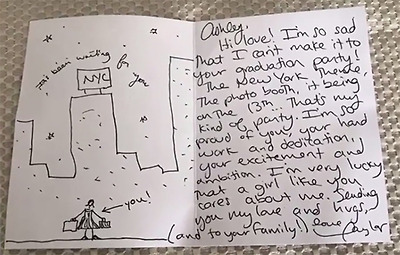 it's been waiting for you
NYC
you!
Ashley,
Hi love! I'm so sad
that I can't make it to
your graduation party!
The New York Theme,
The photo booth, it being
on the 13th. That's my
kind of party. I'm so
proud of you, your hard
work and deditation,
your excitement and
ambition. I'm very lucky
that a girl like you
cares about me. Sending
you my love and hugs,
(and to your family!) Love
Taylor